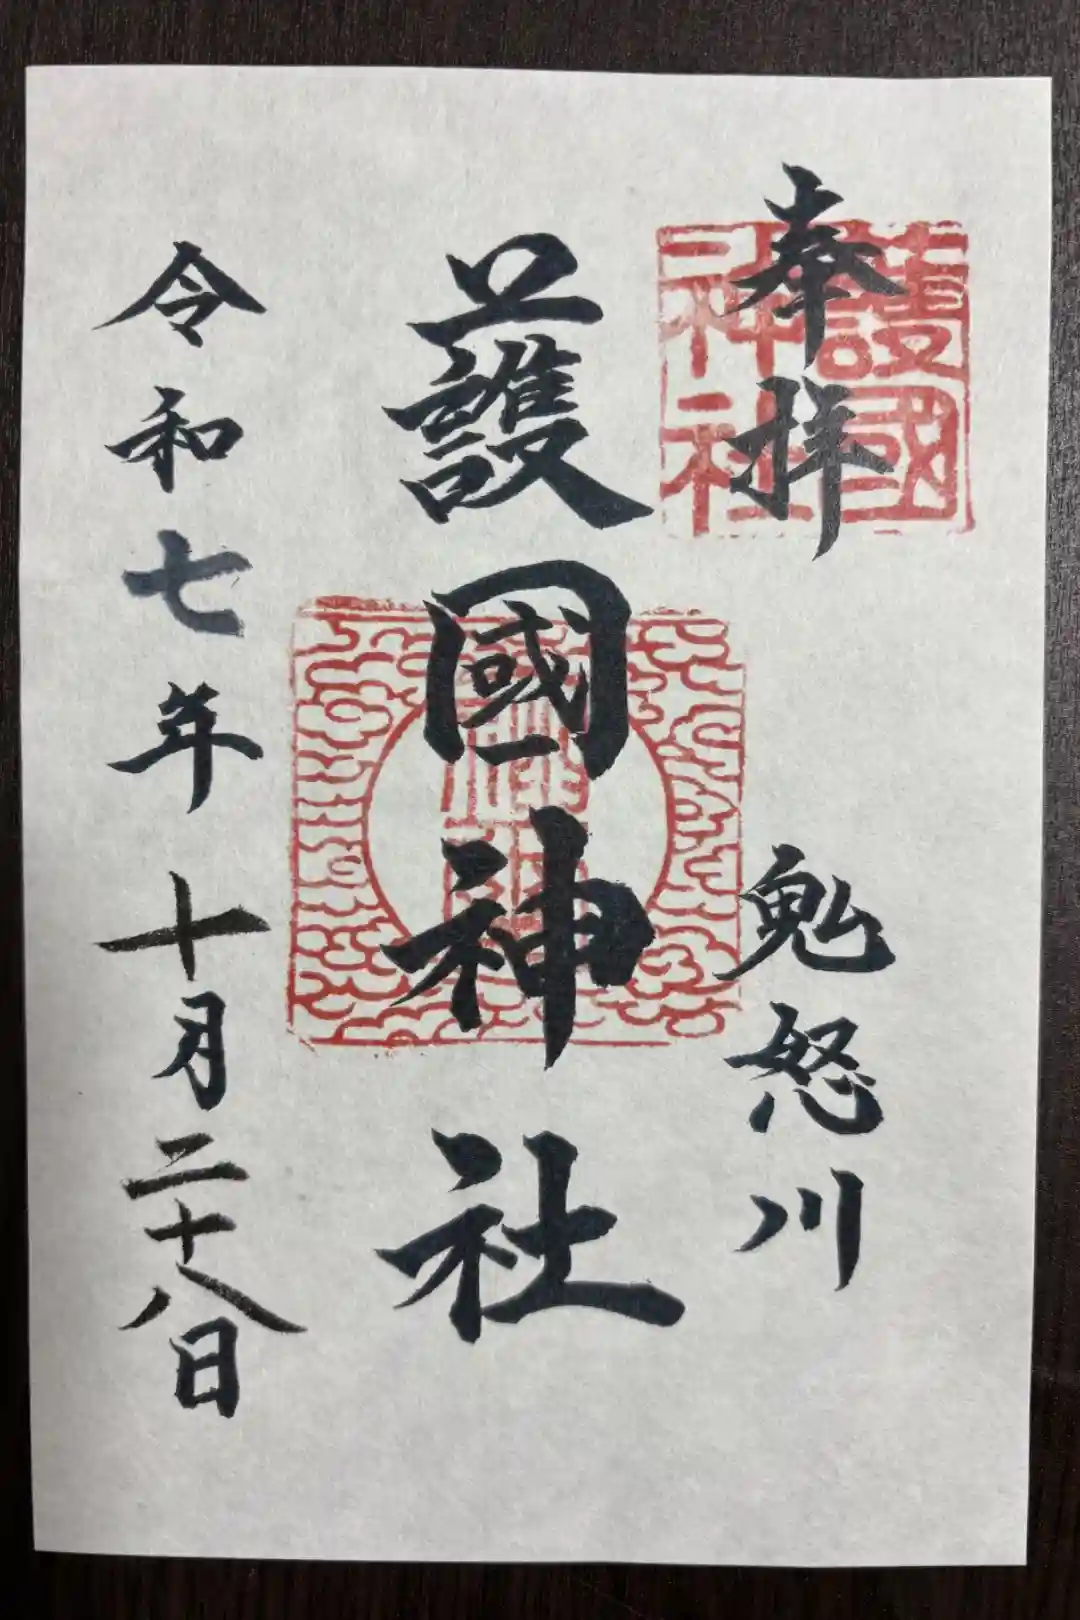 護國
神社
奉拝
鬼怒川
護國神社
令和七年十月二十八日